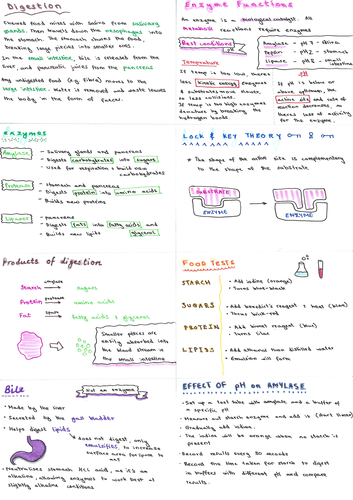 Digestion
Chewed food mixes with saliva from salivary
glands. Then travels down the oesophagus into
the stomach. The stomach churns the food,
breaking large pieces into smaller ones.
In the small intestine, bile is released from the
liver, and pancreatic juices from the pancreas
Any undigested food (e.g. fibre) moves to the
large intestine. Water is removed and waste leaves
the body in the form of faeces.
Enzyme Functions
An enzyme is a biological catalyst. All
metabolic reactions require enzymes
Best conditions
pH
Amylase - pH 7 - stomach
Pepsin - pH2 - stomach
Lipase - pH8 - small
intestine
Temperature
If temp is too low, there's
less kinetic energy. Enzymes
& substrates move slower,
so less collisions.
If temp is too high enzymes
denature by breaking the
hydrogen bonds
pH
If pH is below or
above optimum, the
active site and rate of
reaction decreases, as
there's less activity
for the enzyme.
Enzymes
Amylase
- Salivary glands and pancreas
- Digests carbohydrates into sugars
- Used for respiration & build new
carbohydrates
Protease
- Stomach and pancreas
- Digests protein into amino acids
- Builds new proteins
Lipase
- pancreas
- Digests fats into fatty acids and
glycerol
- Builds new lipids
Lock & KEY THEORY
The shape of the active site is complementary
to the shape of the substrate
SUBSTRATE
ENZYME
ENZYME
Products of digestion
Starch amylase sugars
Protein protease amino acids
Fat lipase fatty acids & glycerol
Smaller pieces are
easily absorbed into
the blood stream in
the small intestine
FOOD TESTS
STARCH
• Add iodine (orange)
• Turns blue-black
SUGARS
• Add benedict's reagent & heat (blue)
• Turns brick-red
PROTEIN
• Add biuret reagent (blue)
• Turns lilac
LIPIDS
• Add ethanol then distilled water
• Emulsion will form
Bile
Not an enzyme
• Made by the liver
• Secreted by the gall bladder
• Helps digest lipids
does not digest, only
emulsifies, to increase
surface area for
• Neutralises stomach HCl acid, as it's an
alkaline, allowing enzymes to work best at
slightly alkaline conditions
EFFECT OF pH on AMYLASE
- Set up a test tube with amylase and a buffer of
a specific pH
- Measure out starch enzyme and add in
- Gradually add iodine.
- The iodine will be orange when no starch is
present
- Record results every 30 seconds
- Record the time taken for starch to digest
in buffers with different pH and compare
results.